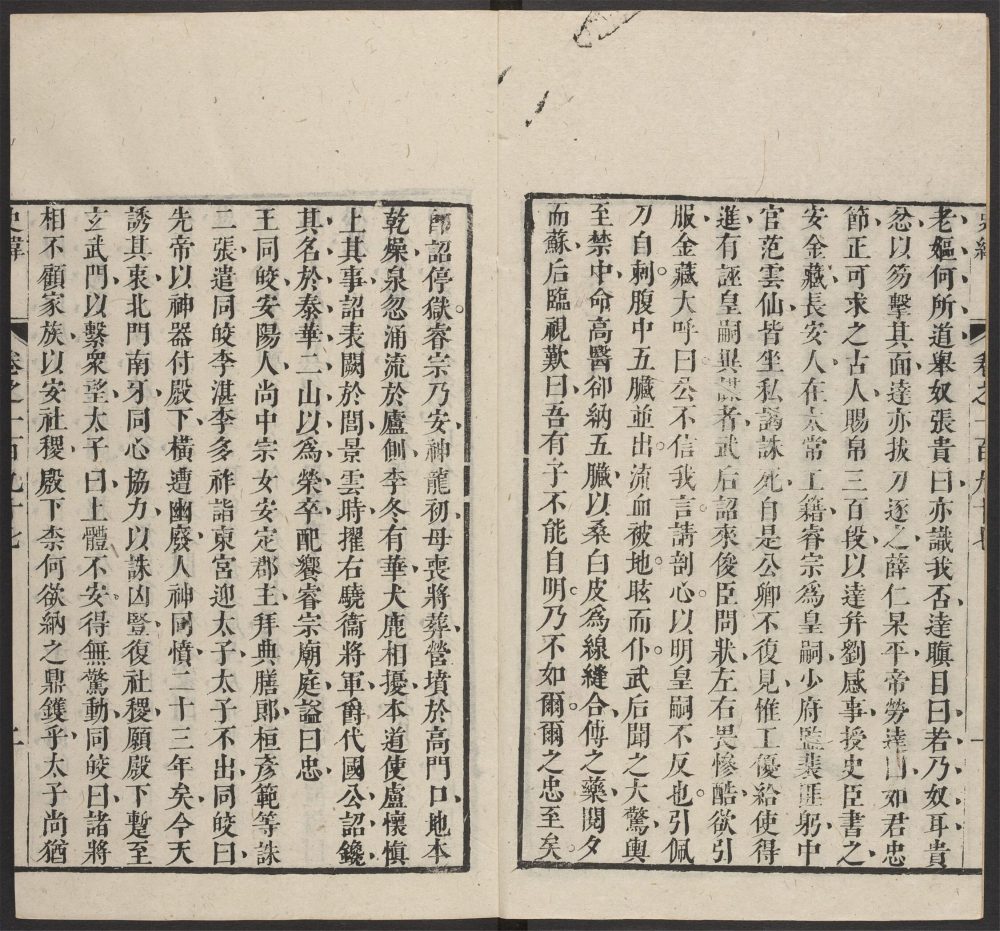 史緯 卷之一百九十七 一
老嫗何所道舉奴張貴曰亦識我否達瞋目曰若乃奴耳貴
忿以笏擊其面達亦拔刀逐之薛仁杲平帝勞達曰如君忠
節正可求之古人賜帛三百段以達幷劉感事授史臣書之
安金藏長安人在太常工籍睿宗爲皇嗣少府監裴匪躬中
官范雲仙皆坐私謁誅死自是公卿不復見惟工優給使得
進有誣皇嗣異謀者武后詔來俊臣問狀左右畏慘酷欲引
服金藏大呼曰公不信我言請剖心以明皇嗣不反也引佩
刀自刺腹中五臟並出流血被地眩而仆武后聞之大驚輿
至禁中命高醫卻納五臟以桑白皮爲線縫合傅之藥閱夕
而蘇后臨視歎曰吾有子不能自明乃不如爾爾之忠至矣
卽詔停獄睿宗乃安神龍初母喪將葬營墳於高門口地本
乾燥泉忽涌流於廬側李冬有華犬鹿相擾本道使盧懷愼
上其事詔表闕於閭景雲時擢右驍衞將軍爵代國公詔鑱
其名於泰華二山以爲榮卒配饗睿宗廟庭謚曰忠
王同皎安陽人尚中宗女安定郡主拜典膳郎桓彥範等誅
二張遣同皎李湛李多祚詣東宮迎太子太子不出同皎曰
先帝以神器付殿下橫遭幽廢人神同憤二十三年矣今天
誘其衷北門南牙同心協力以誅凶豎復社稷願殿下蹔至
玄武門以繫衆望太子曰上體不安得無驚動同皎曰諸將
相不顧家族以安社稷殿下柰何欲納之鼎鑊乎太子尚猶
史緯 卷之一百九十七 二